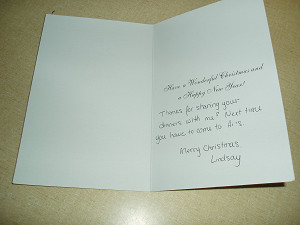 Have a Wonderful Christmas and
a Happy New Year!
Thanks for sharing your
dinners with me! Next time
you have to come to Ai's.
Merry Christmas,
Lindsay